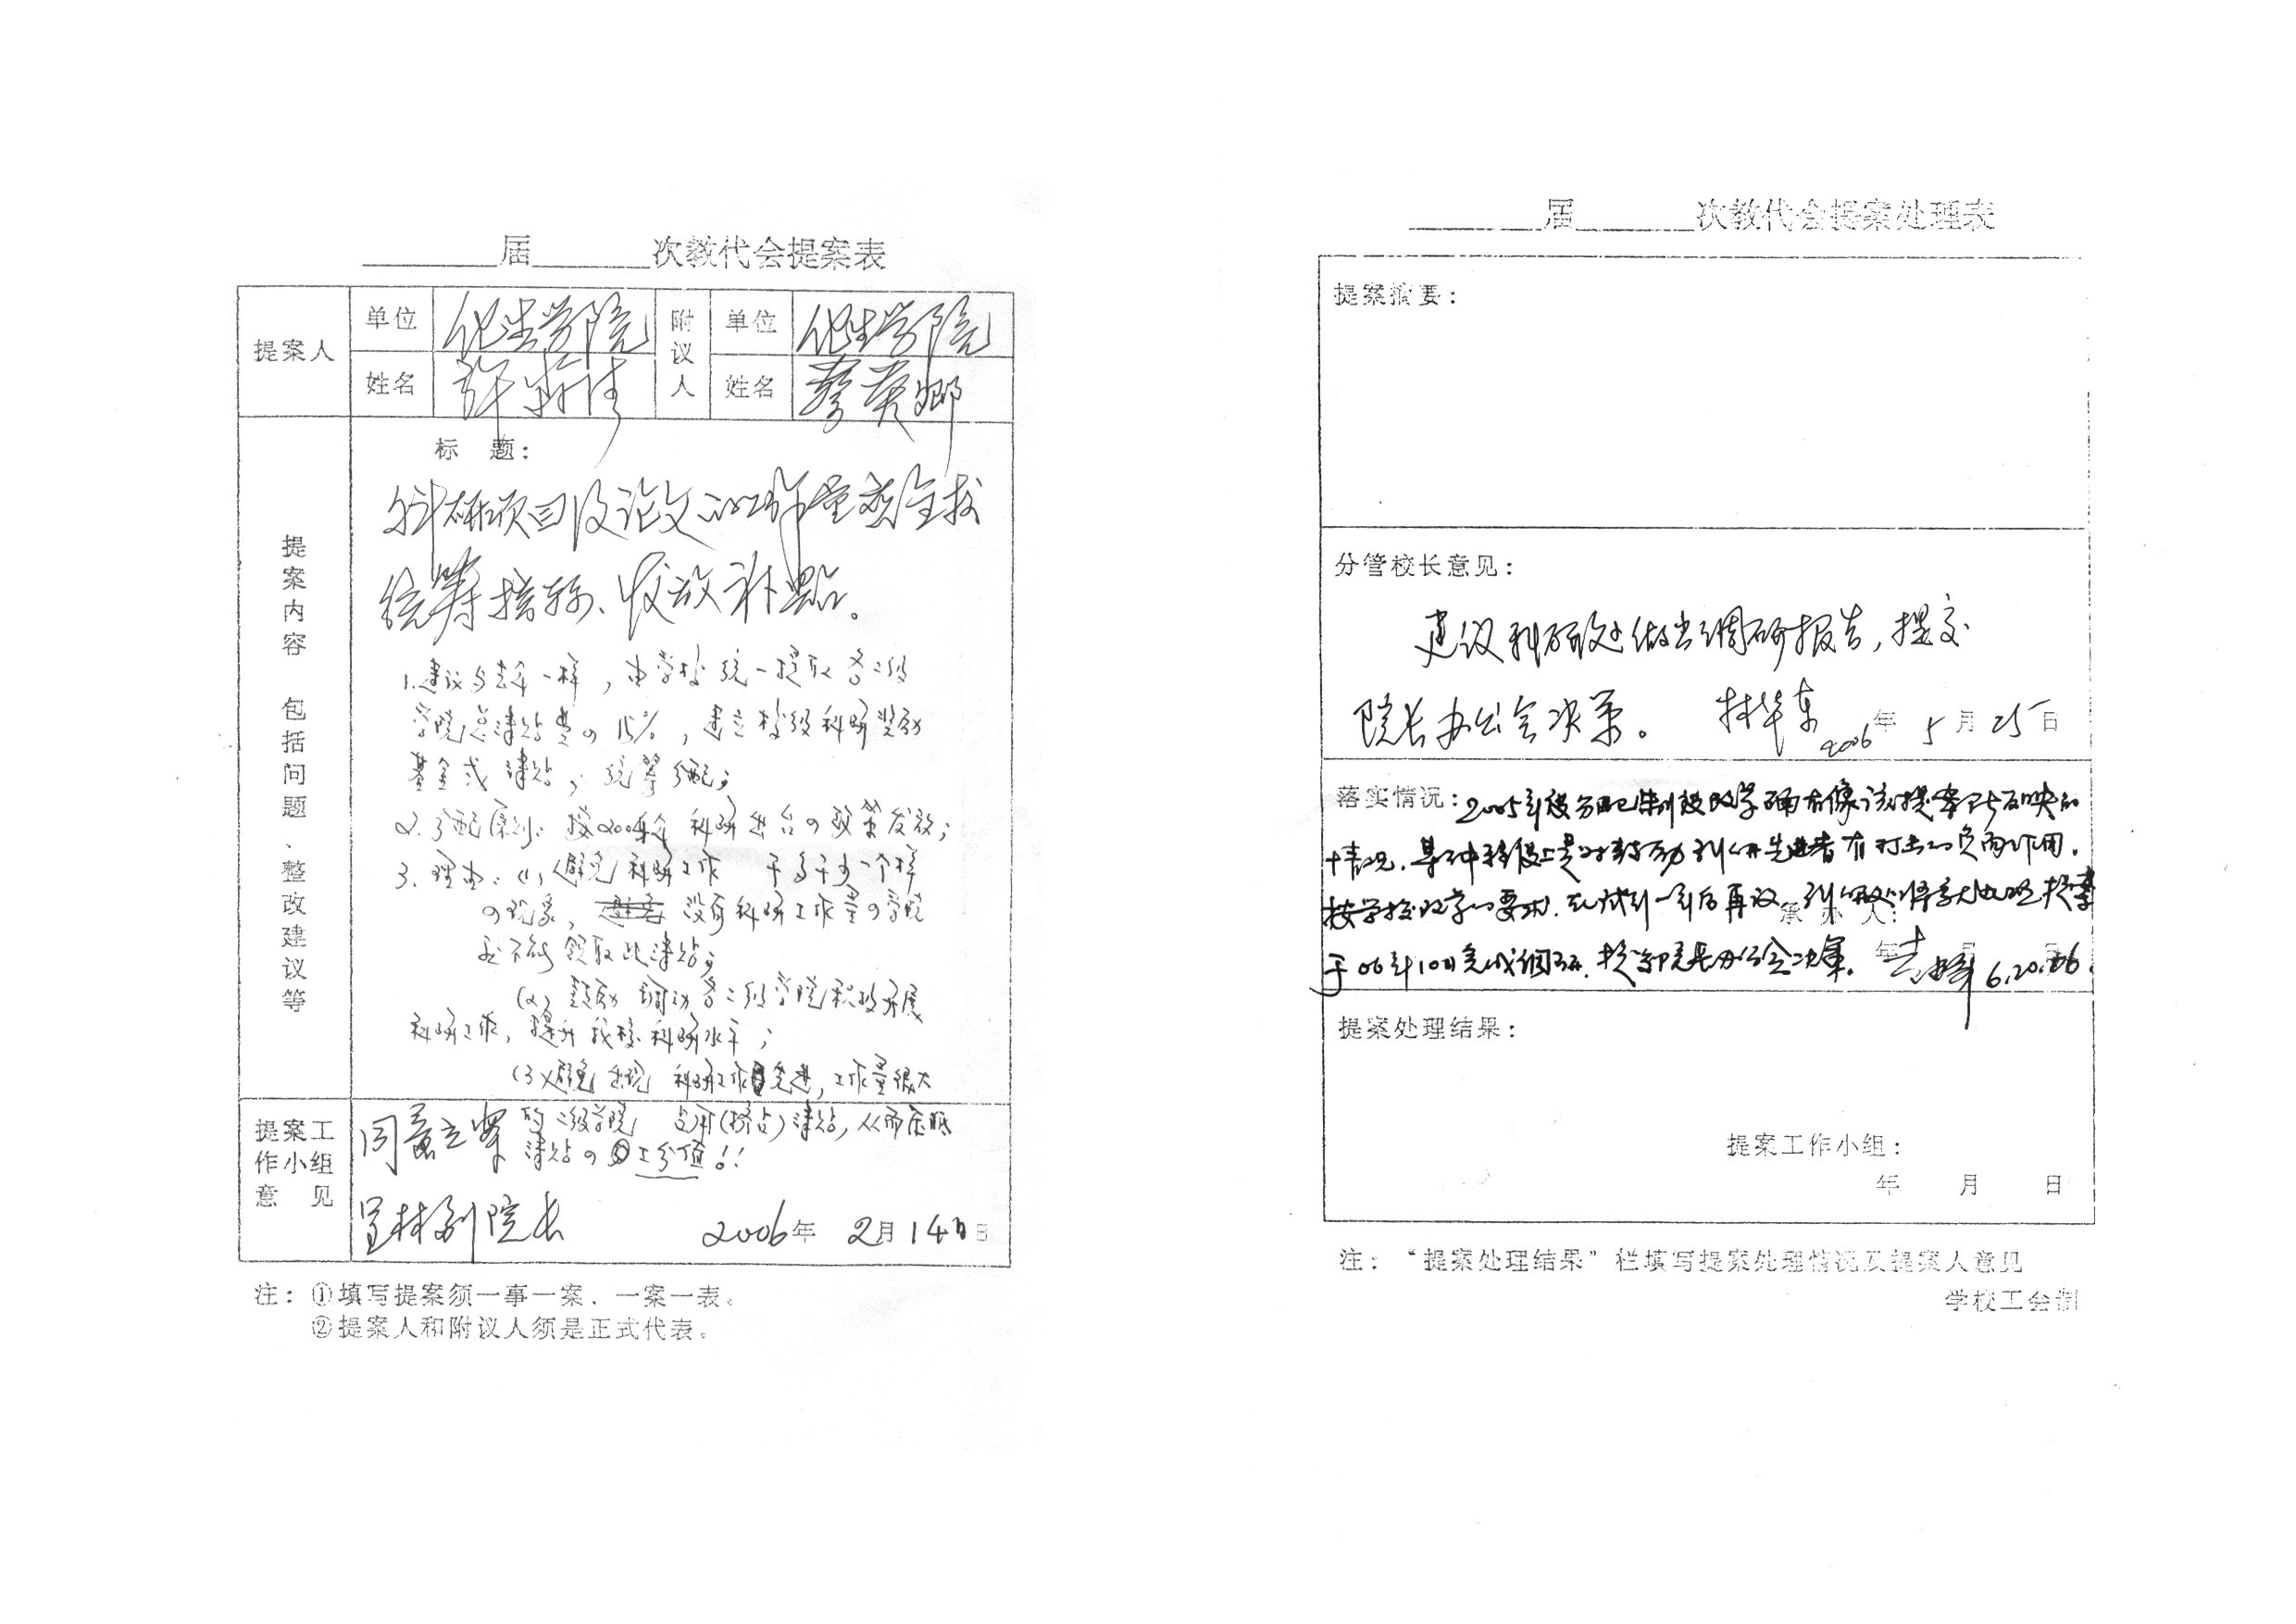 届 次教代会提案表
提案人 单位 化生学院 附议人 单位 化生学院
姓名 许 姓名 蔡英卿
提案内容 包括问题、整改建议等
标 题：
科研项目及论文的工作量应全校
统筹指标、发放补贴。
1.建议与去年一样，由学校统一提取各二级
学院总津贴费の15%，建立校级科研奖励
基金或津贴，统筹分配；
2.分配原则：按2004年 科研出台の政策发放；
3.理由：(1)避免科研工作 干多干少一个样
の现象， 没有科研工作量の学院
不能领取此津贴；
(2)鼓励 调动各二级学院积极开展
科研工作，提升我校科研水平；
(3)避免出现 科研工作先进，工作量很大
的二级学院 占用(挤占)津贴，从而压低
津贴の工分值！！
提案工作小组意 见
同意立案
呈林副院长
2006年 2月 14日
注：①填写提案须一事一案、一案一表。
②提案人和附议人须是正式代表。
届 次教代会提案处理表
提案摘要：
分管校长意见：
建议科研处做出调研报告，提交
院长办公会决策。 林华东 2006年 5月25日
落实情况：2005年校分配制度改革确有像该提案所反映的
情况，某种程度上是对教师科研先进者有打击的负面作用，
按学校改革的要求，先试行一年后再议，科研处将 提案
于06年10月完成调研，提交院长办公会决策。 6.20.06.
承办人：
年 月 日
提案处理结果：
提案工作小组：
年 月 日
注：“提案处理结果”栏填写提案处理情况及提案人意见
学校工会制